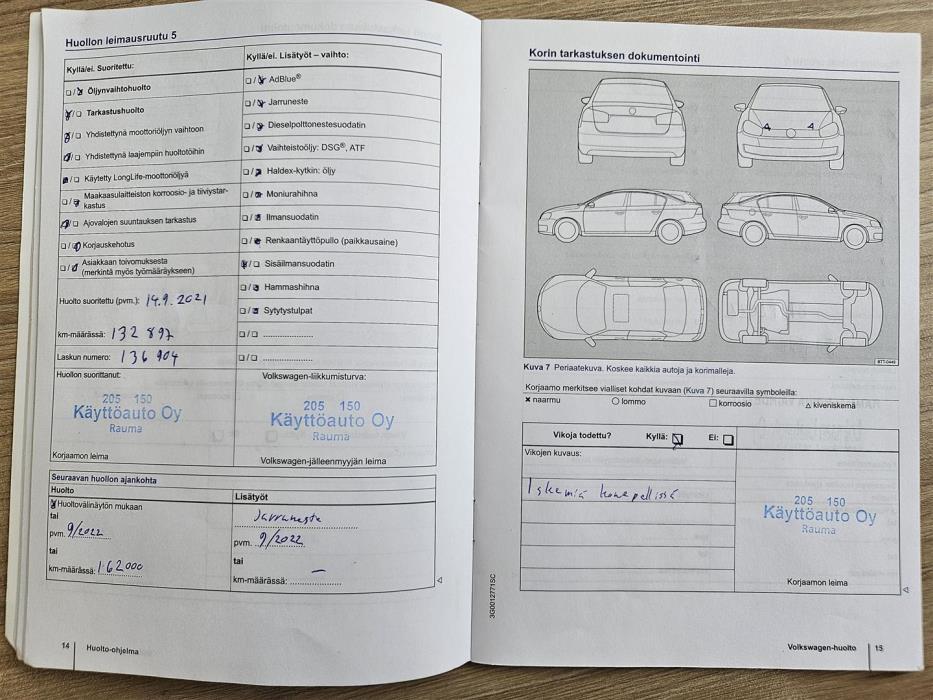 Huollon leimausruutu 5
Kyllä/ei. Suoritettu:
Öljynvaihtohuolto
Tarkastushuolto
Yhdistettynä moottoriöljyn vaihtoon
Yhdistettynä laajempiin huoltotöihin
Käytetty LongLife-moottoriöljyä
Maakaasulaitteiston korroosio- ja tiiviystar-
kastus
Ajovalojen suuntauksen tarkastus
Korjauskehotus
Asiakkaan toivomuksesta
(merkintä myös työmääräykseen)
Huolto suoritettu (pvm.): 14.9.2021
km-määrässä: 132 897
Laskun numero: 136 904
Huollon suorittanut:
205 150
Käyttöauto Oy
Rauma
Korjaamon leima
Kyllä/ei. Lisätyöt – vaihto:
AdBlue®
Jarruneste
Dieselpolttonestesuodatin
Vaihteistoöljy: DSG®, ATF
Haldex-kytkin: öljy
Moniurahihna
Ilmansuodatin
Renkaantäyttöpullo (paikkausaine)
Sisäilmansuodatin
Hammashihna
Sytytystulpat
Volkswagen-liikkumisturva:
205 150
Käyttöauto Oy
Rauma
Volkswagen-jälleenmyyjän leima
Seuraavan huollon ajankohta
Huolto
Huoltovälinäytön mukaan
tai
pvm. 9/2022
tai
km-määrässä: 162000
Lisätyöt
Jarruneste
pvm. 9/2022
tai
km-määrässä: —
14 Huolto-ohjelma
Korin tarkastuksen dokumentointi
BTT-0449
Kuva 7 Periaatekuva. Koskee kaikkia autoja ja korimalleja.
Korjaamo merkitsee vialliset kohdat kuvaan (Kuva 7) seuraavilla symboleilla:
naarmu lommo korroosio kiveniskemä
Vikoja todettu? Kyllä: Ei:
Vikojen kuvaus:
Iskemiä konepellissä
205 150
Käyttöauto Oy
Rauma
Korjaamon leima
3G0012771SC
Volkswagen-huolto 15